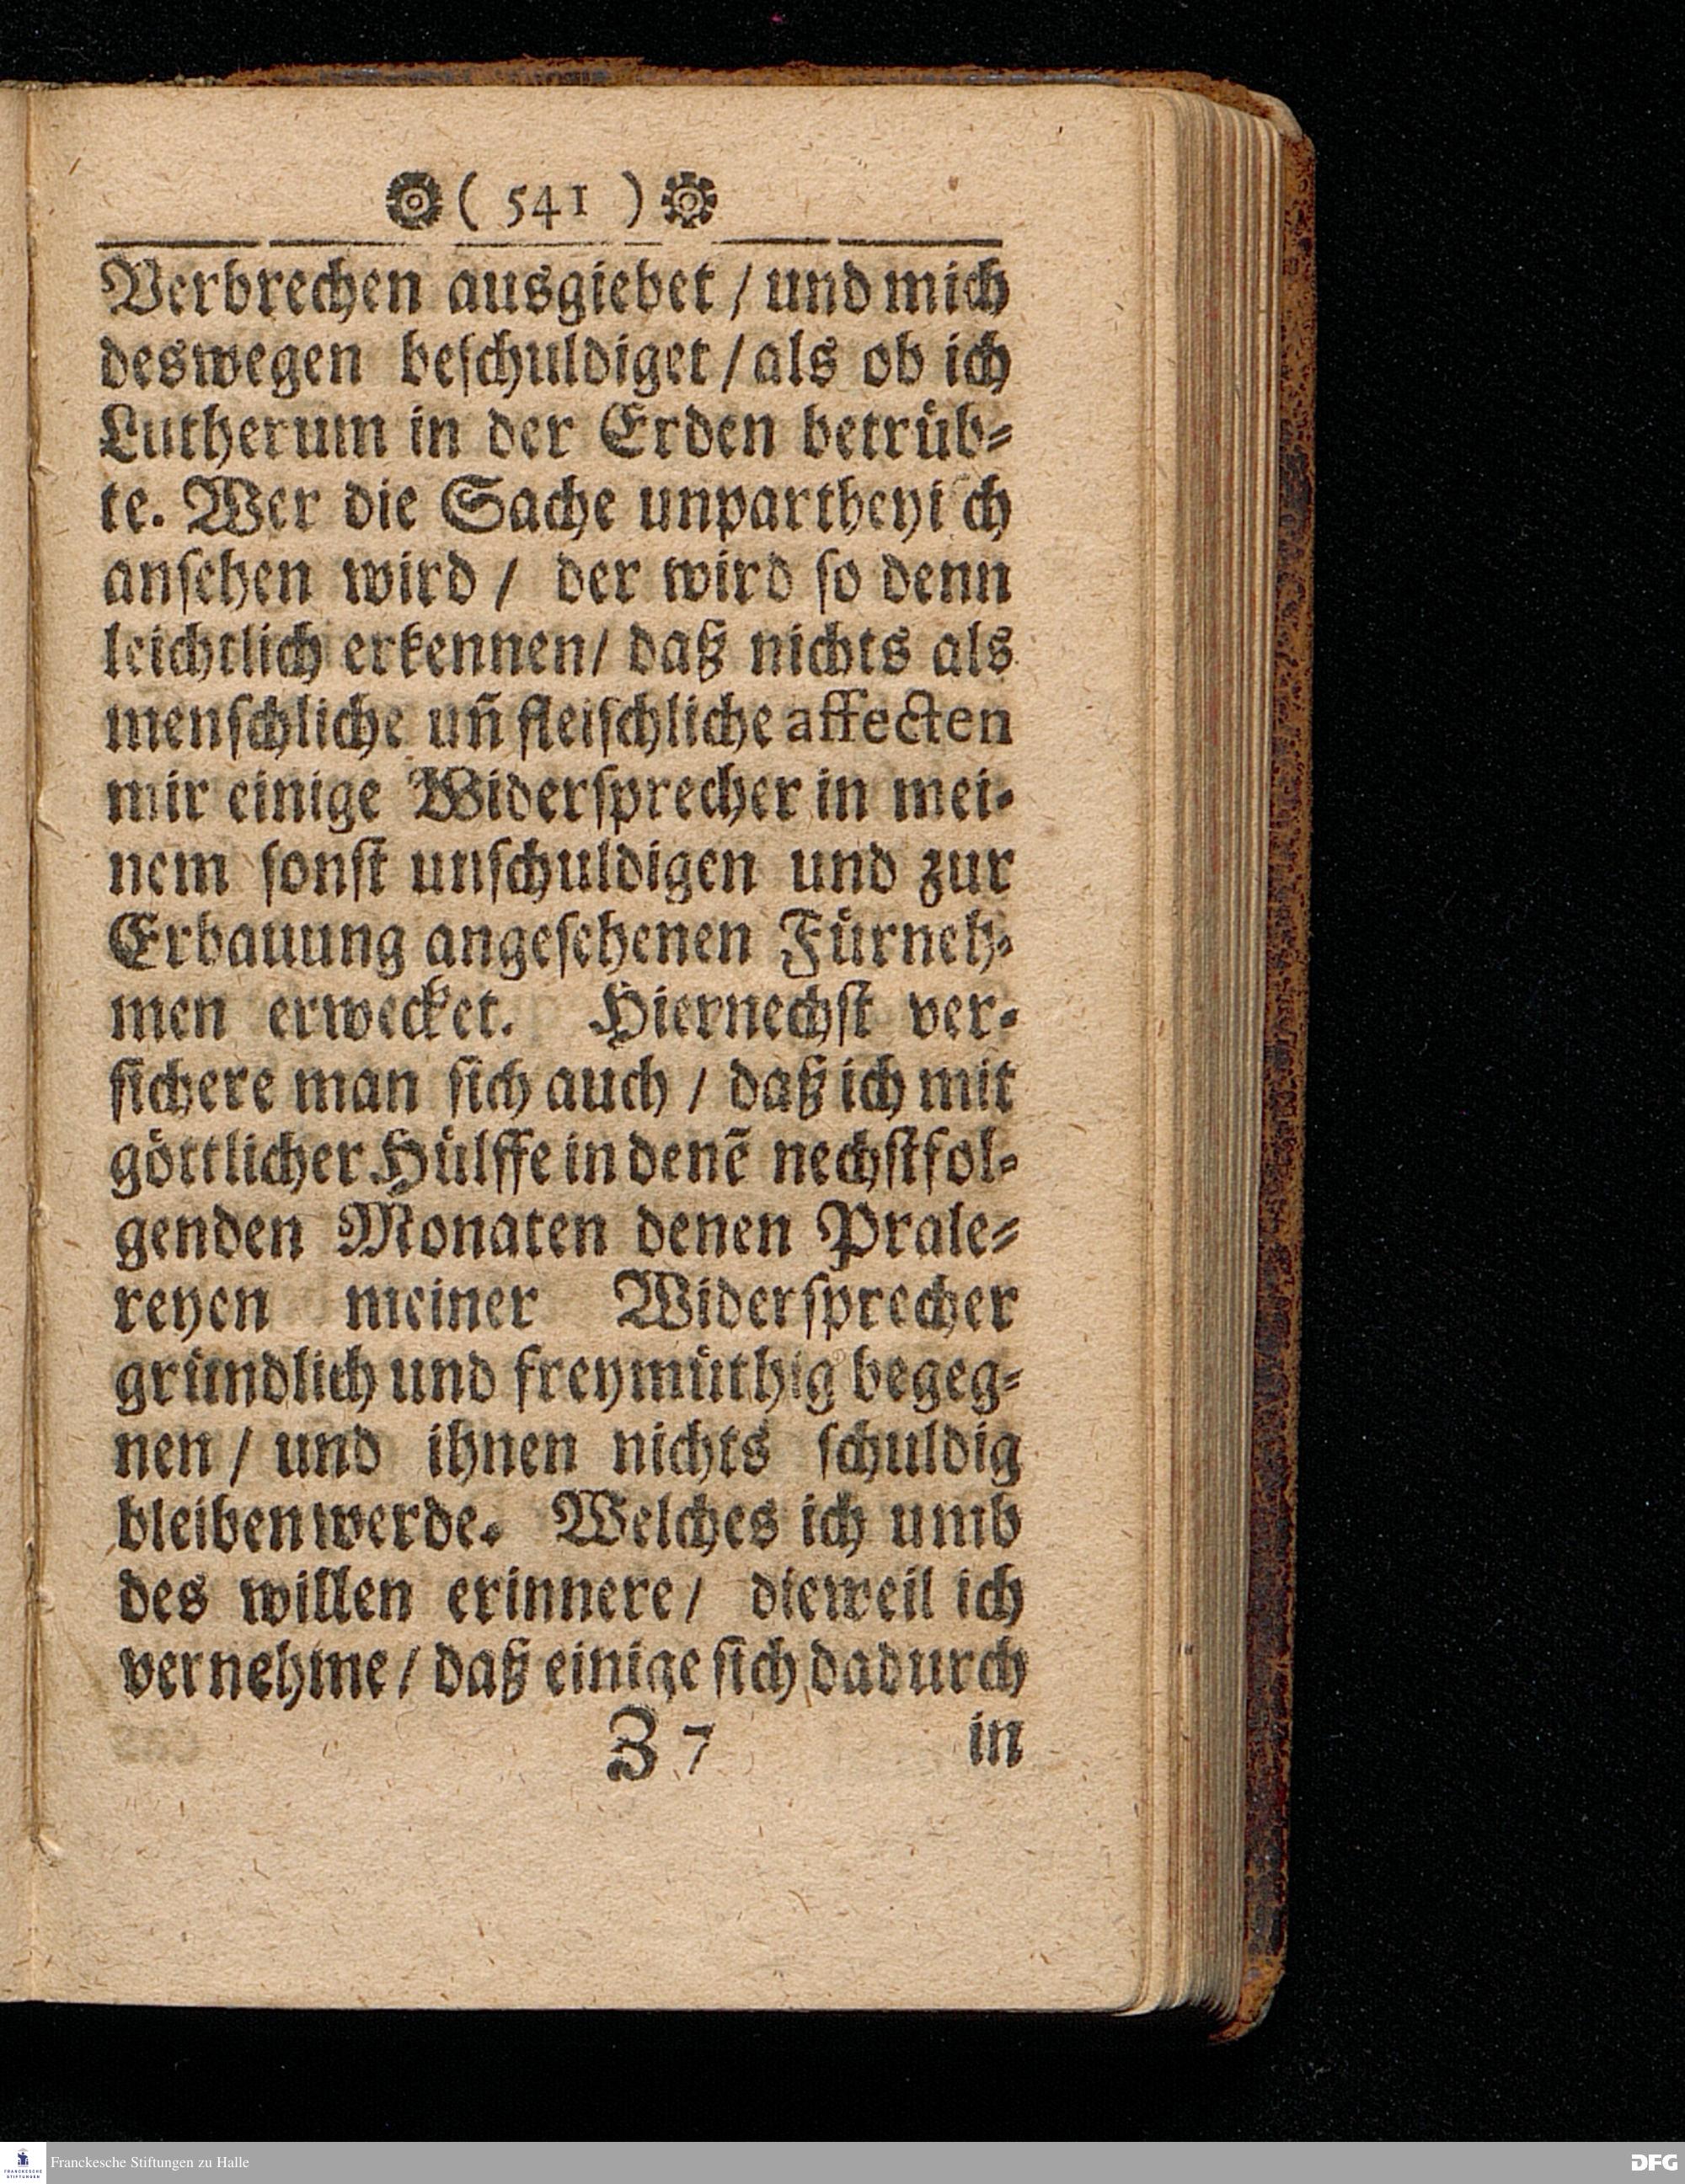 ( 541 )
Verbrechen ausgiebet / und mich
deswegen beſchuldiget / als ob ich
Lutherum in der Erden betruͤb⸗
te. Wer die Sache unpartheyiſch
anſehen wird / der wird ſo denn
leichtlich erkennen / daß nichts als
menſchliche uñ fleiſchliche affecten
mir einige Widerſprecher in mei⸗
nem ſonſt unſchuldigen und zur
Erbauung angeſehenen Fuͤrneh⸗
men erwecket. Hiernechſt ver⸗
ſichere man ſich auch / daß ich mit
goͤttlicher Huͤlffe in denẽ nechſtfol⸗
genden Monaten denen Prale⸗
reyen meiner Widerſprecher
gruͤndlich und freymuͤthig begeg⸗
nen / und ihnen nichts ſchuldig
bleiben werde. Welches ich umb
des willen erinnere / dieweil ich
vernehme / daß einige ſich dadurch
Z 7 in
Franckesche Stiftungen zu Halle
FRANCKESCHE
STIFTUNGEN
DFG